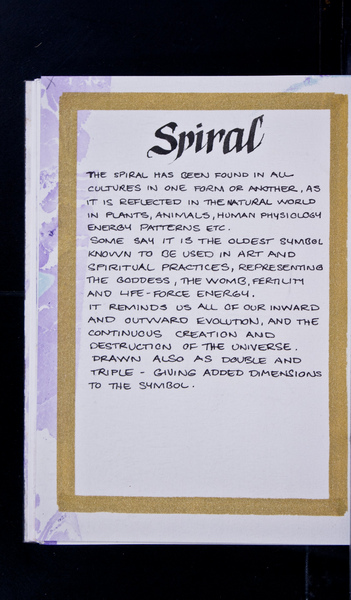 Spiral
THE SPIRAL HAS BEEN FOUND IN ALL
CULTURES IN ONE FORM OR ANOTHER, AS
IT IS REFLECTED IN THE NATURAL WORLD
IN PLANTS, ANIMALS, HUMAN PHYSIOLOGY
ENERGY PATTERNS ETC.
SOME SAY IT IS THE OLDEST SYMBOL
KNOWN TO BE USED IN ART AND
SPIRITUAL PRACTICES, REPRESENTING
THE GODDESS, THE WOMB, FERTILITY
AND LIFE-FORCE ENERGY.
IT REMINDS US ALL OF OUR INWARD
AND OUTWARD EVOLUTION, AND THE
CONTINUOUS CREATION AND
DESTRUCTION OF THE UNIVERSE.
DRAWN ALSO AS DOUBLE AND
TRIPLE - GIVING ADDED DIMENSIONS
TO THE SYMBOL.